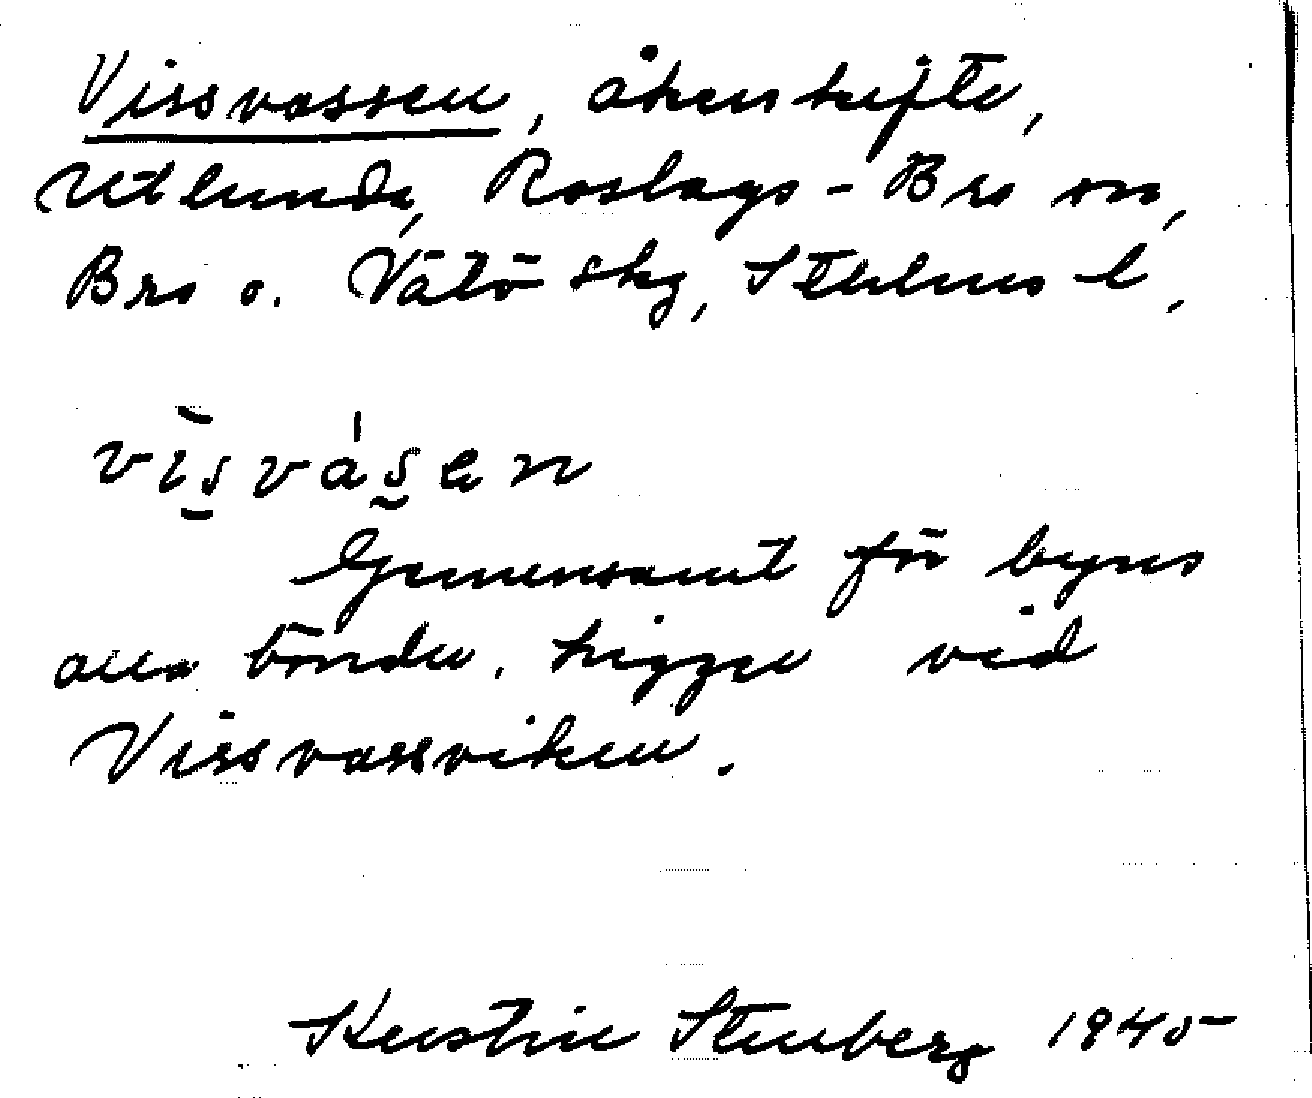 Vissvassen, åkerskifte,
Utlunda, Roslags-Bro sn,
Bro o. Vätö skg, Sthlms l.
visvásen
Gemensamt för byns
alla bönder. Ligger vid
Vissvassviken.
Kerstin Stenberg 1945